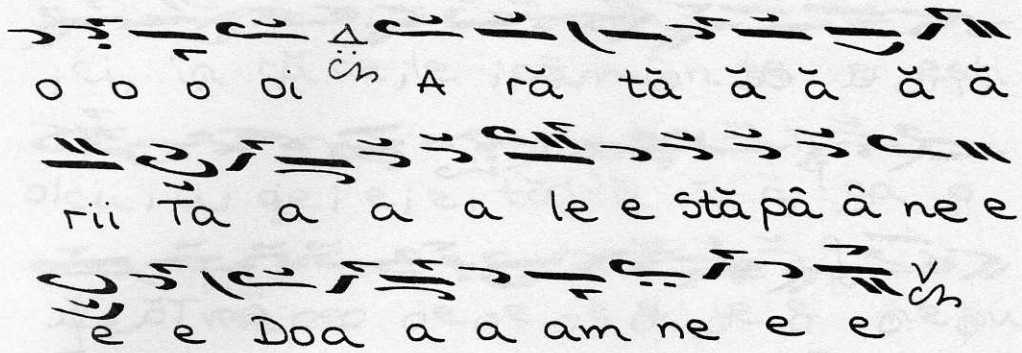 o o o oi A ră tă ă ă ă ă
rii Ta a a a le e stăpâ â ne e
e e Doa a a am ne e e